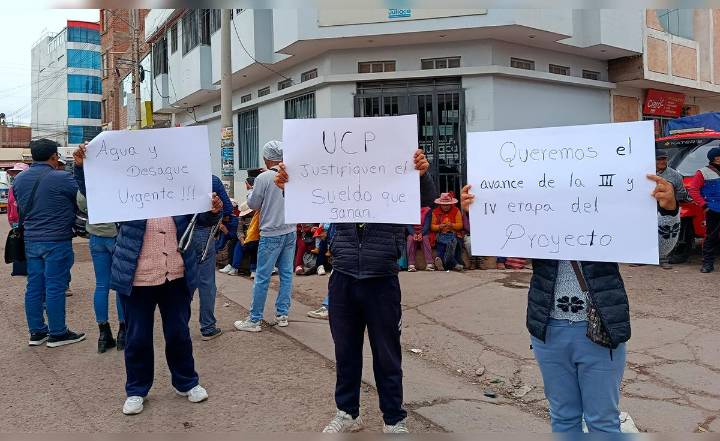 Agua y
Desague
Urgente !!!
UCP
Justifiquen el
Sueldo que
ganan.
Queremos el
avance de la III y
IV etapa del
Proyecto
Claro